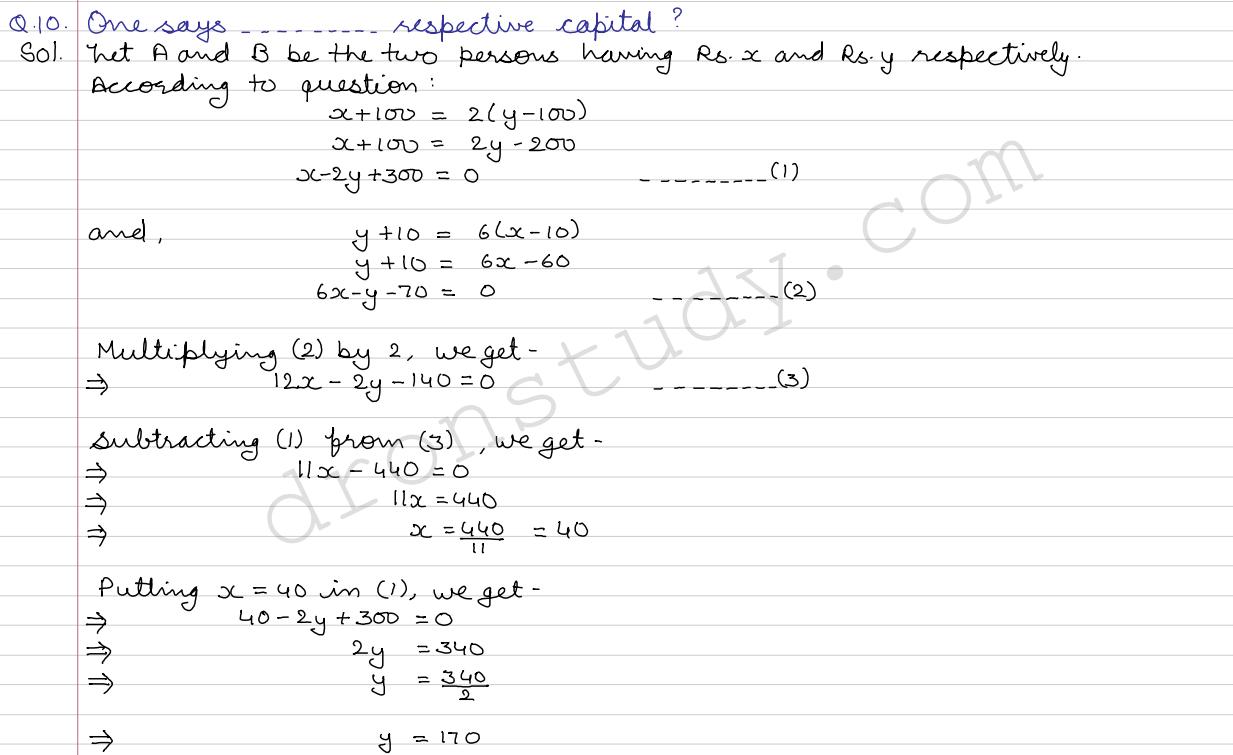 Q.10. One says --------- respective capital ?
Sol. Let A and B be the two persons having Rs. x and Rs. y respectively.
According to question :
x+100 = 2(y-100)
x+100 = 2y-200
x-2y+300 = 0 ---------(1)
and, y+10 = 6(x-10)
y+10 = 6x-60
6x-y-70 = 0 --------(2)
Multiplying (2) by 2, we get-
⇒ 12x-2y-140=0 --------(3)
Subtracting (1) from (3), we get-
⇒ 11x-440=0
⇒ 11x=440
⇒ x = 440/11 = 40
Putting x = 40 in (1), we get-
⇒ 40-2y+300 = 0
⇒ 2y = 340
⇒ y = 340/2
⇒ y = 170
dronstudy.com